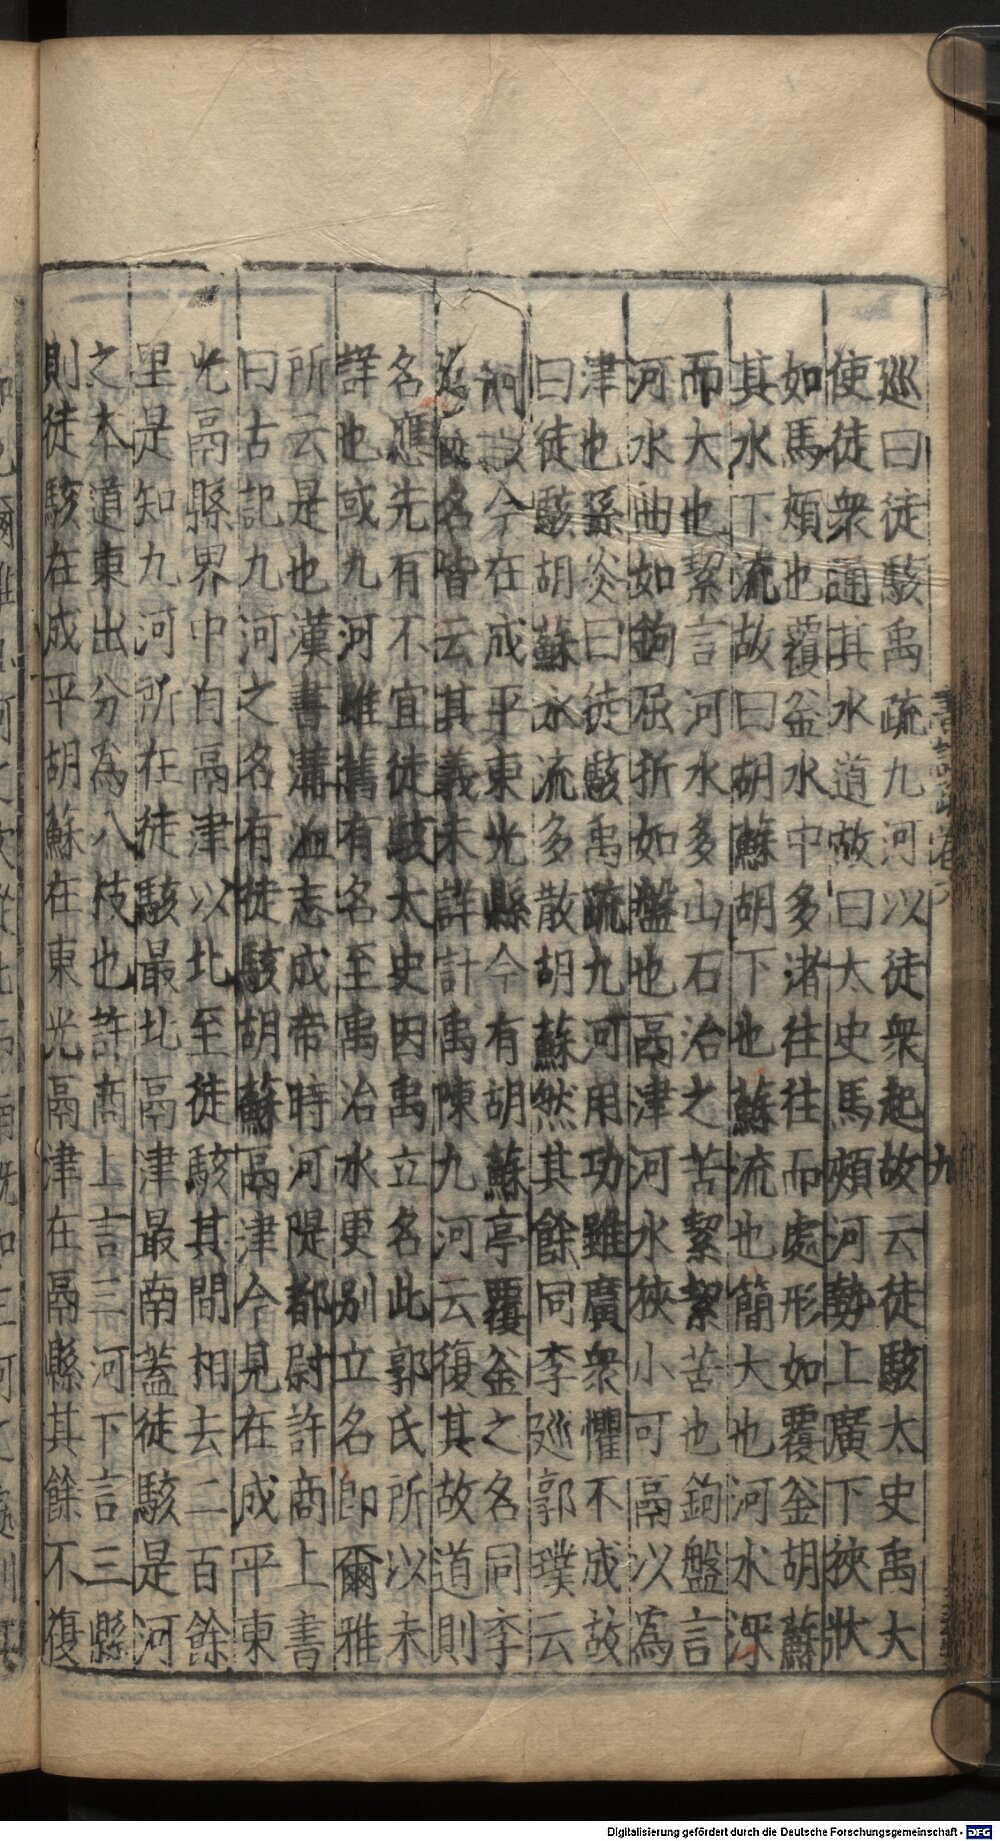 巡曰徒駭禹疏九河以徒衆起故云徒駭太史禹大
使徒衆通其水道故曰太史馬頰河勢上廣下狹狀
如馬頰也覆釡水中多渚往往而處形如覆釡胡蘇
其水下流故曰胡蘇胡下也蘇流也簡大也河水深
而大也絜言河水多山石治之苦絜絜苦也鉤盤言
河水曲如鉤屈折如盤也鬲津河水狹小可鬲以為
津也孫炎曰徒駭禹疏九河用功雖廣衆懼不成故
曰徒駭胡蘇水流多散胡蘇然其餘同李巡郭璞云
今在成平東光縣今有胡蘇亭覆釡之名同李
巡 名皆云其義未詳計禹陳九河云復其故道則
名應先有不宜徒駭太史因禹立名此郭氏所以未
詳也或九河雖舊有名至禹治水更别立名即爾雅
所云是也漢書溝洫志成帝時河隄都尉許商上書
曰古記九河之名有徒駭胡蘇鬲津今見在成平東
光鬲縣界中自鬲津以北至徒駭其間相去二百餘
里是知九河所在徒駭最北鬲津最南蓋徒駭是河
之本道東出分爲八枝也許商上言三河下言三縣
則徒駭在成平胡蘇在東光鬲津在鬲縣其餘不復
九
Digitalisierung gefördert durch die Deutsche Forschungsgemeinschaft - DFG